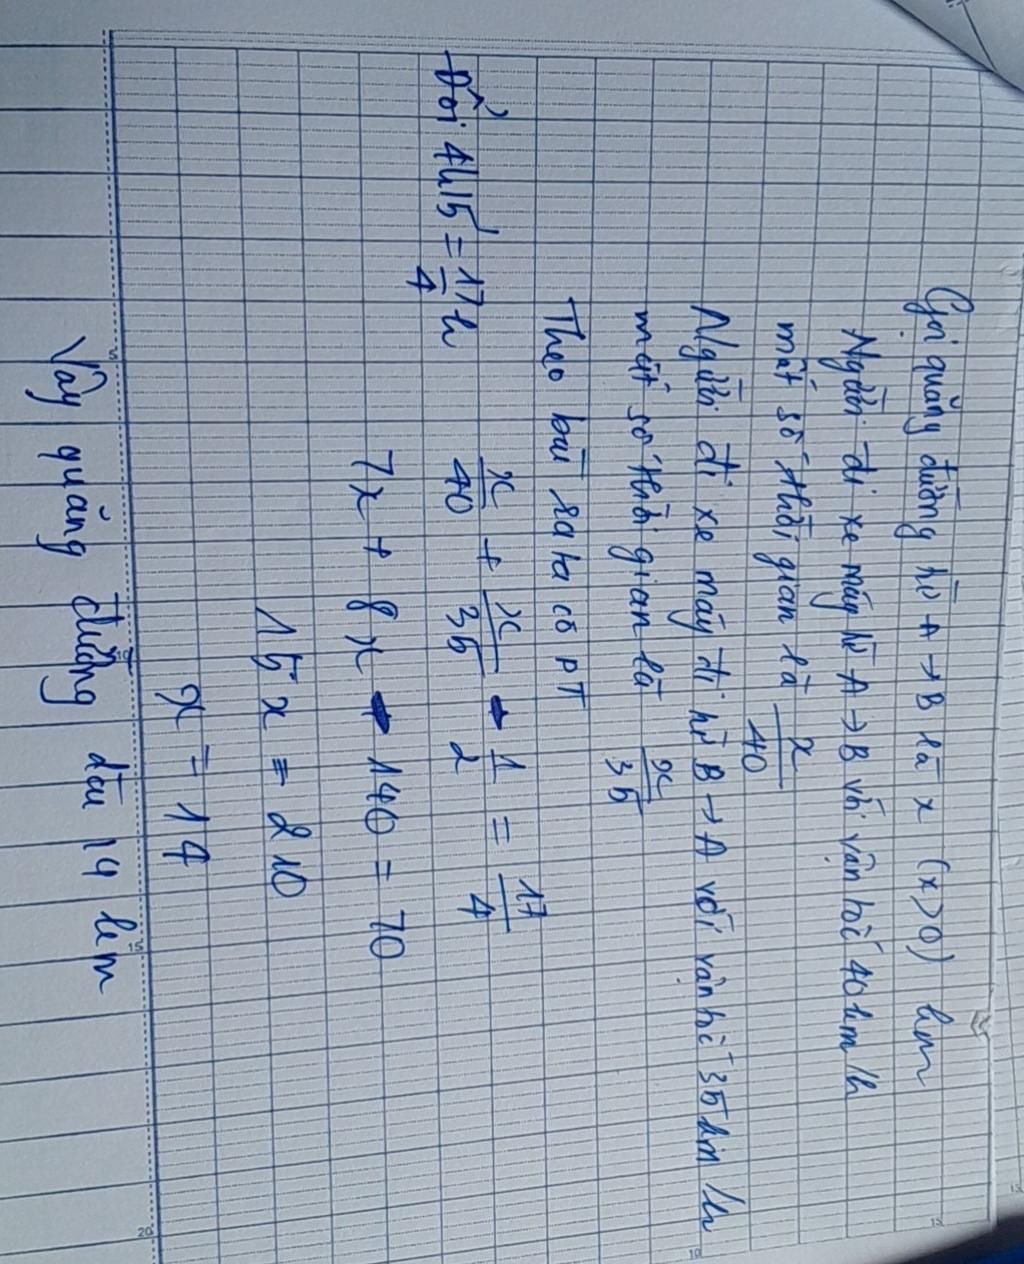 Gọi quãng đường từ A → B là x (x>0) km
Người đi xe máy từ A → B với vận tốc 40km/h
mất số thời gian là x/40
Người đi xe máy đi từ B → A với vận tốc 35km/h
mất số thời gian là x/35
Theo bài ra ta có PT
Đổi 4h15' = 17/4 h x/40 + x/35 + 1/2 = 17/4
7x + 8x + 140 = 70
15x = 210
x = 14
Vậy quãng đường dài 14 km